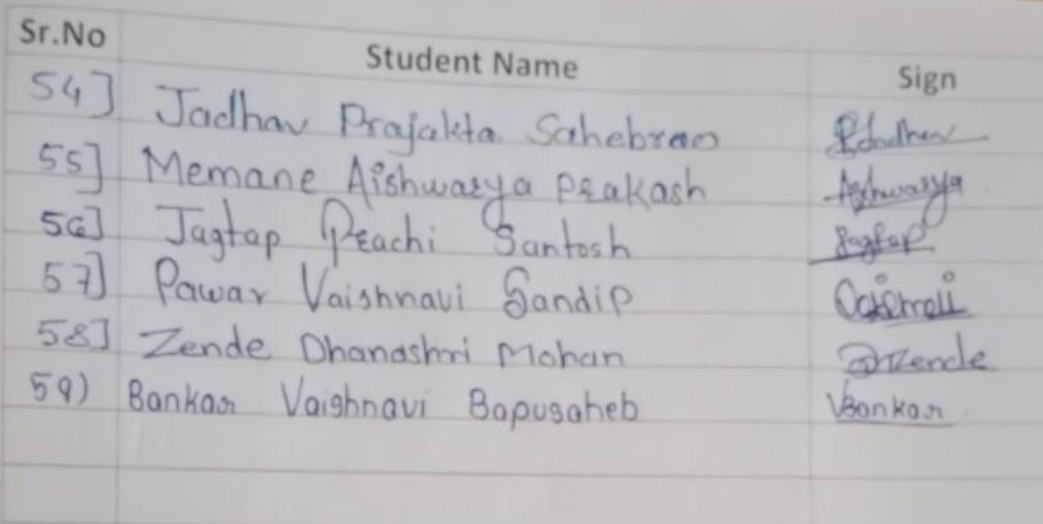 Sr.No Student Name Sign
54] Jadhav Prajakta Sahebrao PJadhav
55] Memane Aishwarya Prakash Aishwarya
56] Jagtap Prachi Santosh Jagtap
57] Pawar Vaishnavi Sandip
58] Zende Dhanashri Mohan DMZende
59) Bankar Vaishnavi Bapusaheb VBankar